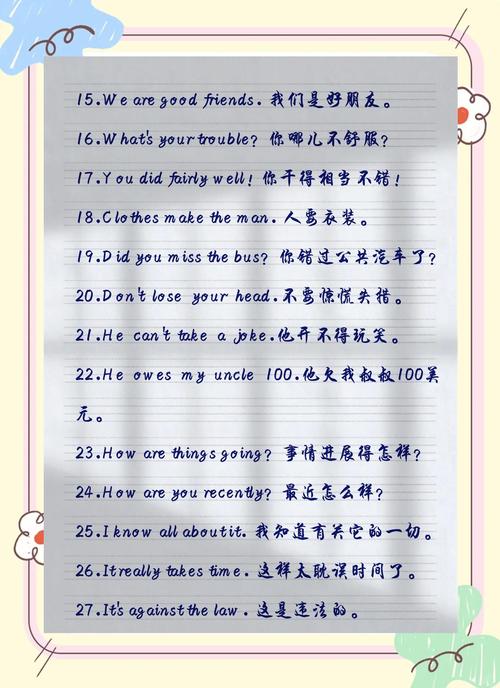 15.We are good friends. 我们是好朋友。
16.What's your trouble? 你哪儿不舒服?
17.You did fairly well! 你干得相当不错!
18.Clothes make the man. 人要衣装。
19.Did you miss the bus? 你错过公共汽车了?
20.Don't lose your head.不要惊慌失措。
21.He can't take a joke.他开不得玩笑。
22.He owes my uncle 100.他欠我叔叔100美
元。
23.How are things going? 事情进展得怎样?
24.How are you recently? 最近怎么样?
25.I know all about it. 我知道有关它的一切。
26.It really takes time. 这样太耽误时间了。
27.It's against the law. 这是违法的。